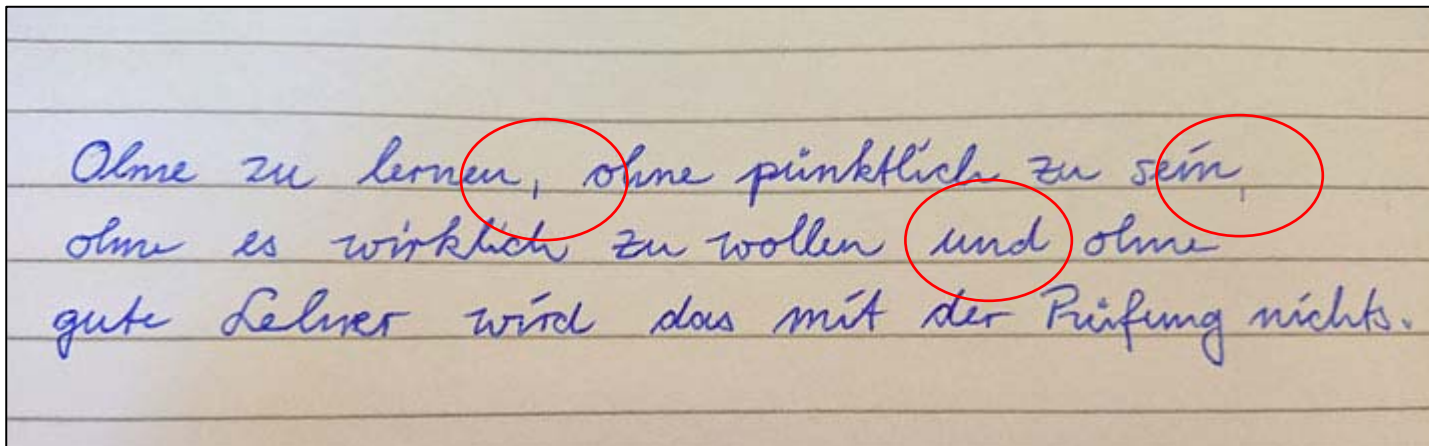 Ohne zu lernen, ohne pünktlich zu sein,
ohne es wirklich zu wollen und ohne
gute Lehrer wird das mit der Prüfung nichts.